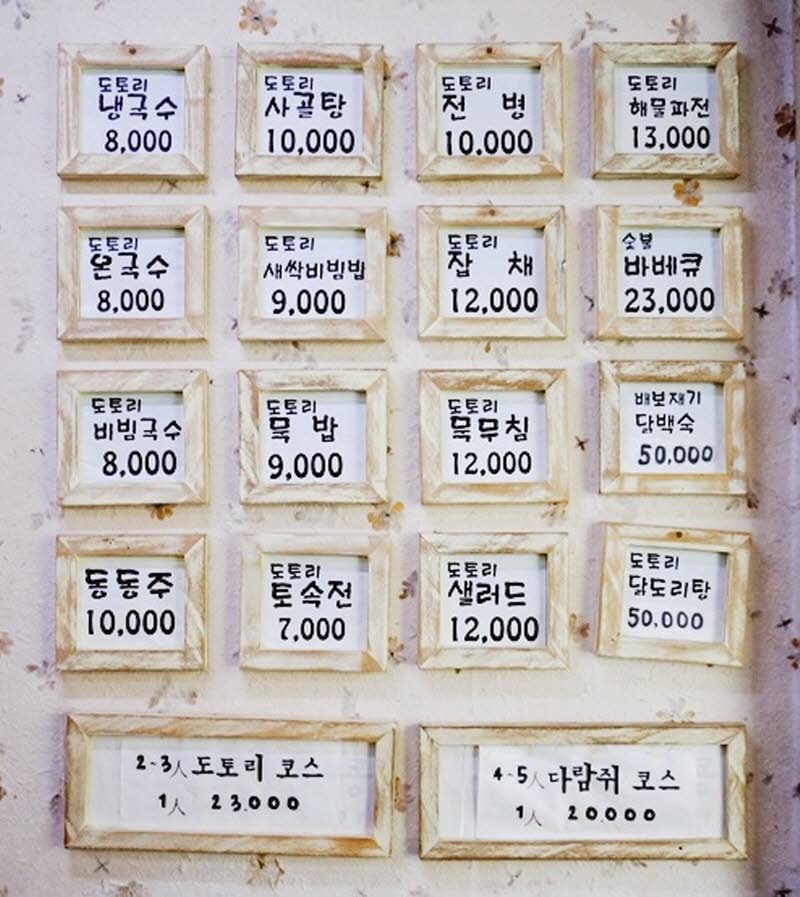 도토리
냉국수
8,000
도토리
사골탕
10,000
도토리
전 병
10,000
도토리
해물파전
13,000
도토리
온국수
8,000
도토리
새싹비빔밥
9,000
도토리
잡 채
12,000
숯불
바베큐
23,000
도토리
비빔국수
8,000
도토리
묵 밥
9,000
도토리
묵무침
12,000
배보재기
닭백숙
50,000
동동주
10,000
도토리
토속전
7,000
도토리
샐러드
12,000
도토리
닭도리탕
50,000
2~3人 도토리 코스
1人 23.000
4~5人 다람쥐 코스
1人 20.000